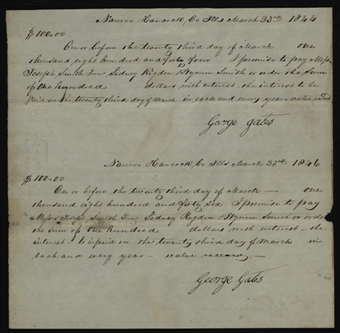 Nauvoo Hancock Co Ills March 23rd 1844
$100.00
On or before the twenty third day of March one
thousand eight hundred and forty four I promise to pay Messrs
Joseph Smith Junr Sidney Rigdon & Hyrum Smith or order the Sum
of One hundred dollars with interest the interest to be
paid on the twenty third of March in each and every year value recd
George Gates
Nauvoo Hancock Co Ills March 23rd 1846
$100.00
On or before the twenty third day of March — one
thousand eight hundred and forty six I promise to pay
Messrs Joseph Smith Junr Sidney Rigdon & Hyrum Smith or order
the Sum of One hundred dollars with interest — the
interest to be paid on the twenty third of March in
each and every year — value received —
George Gates